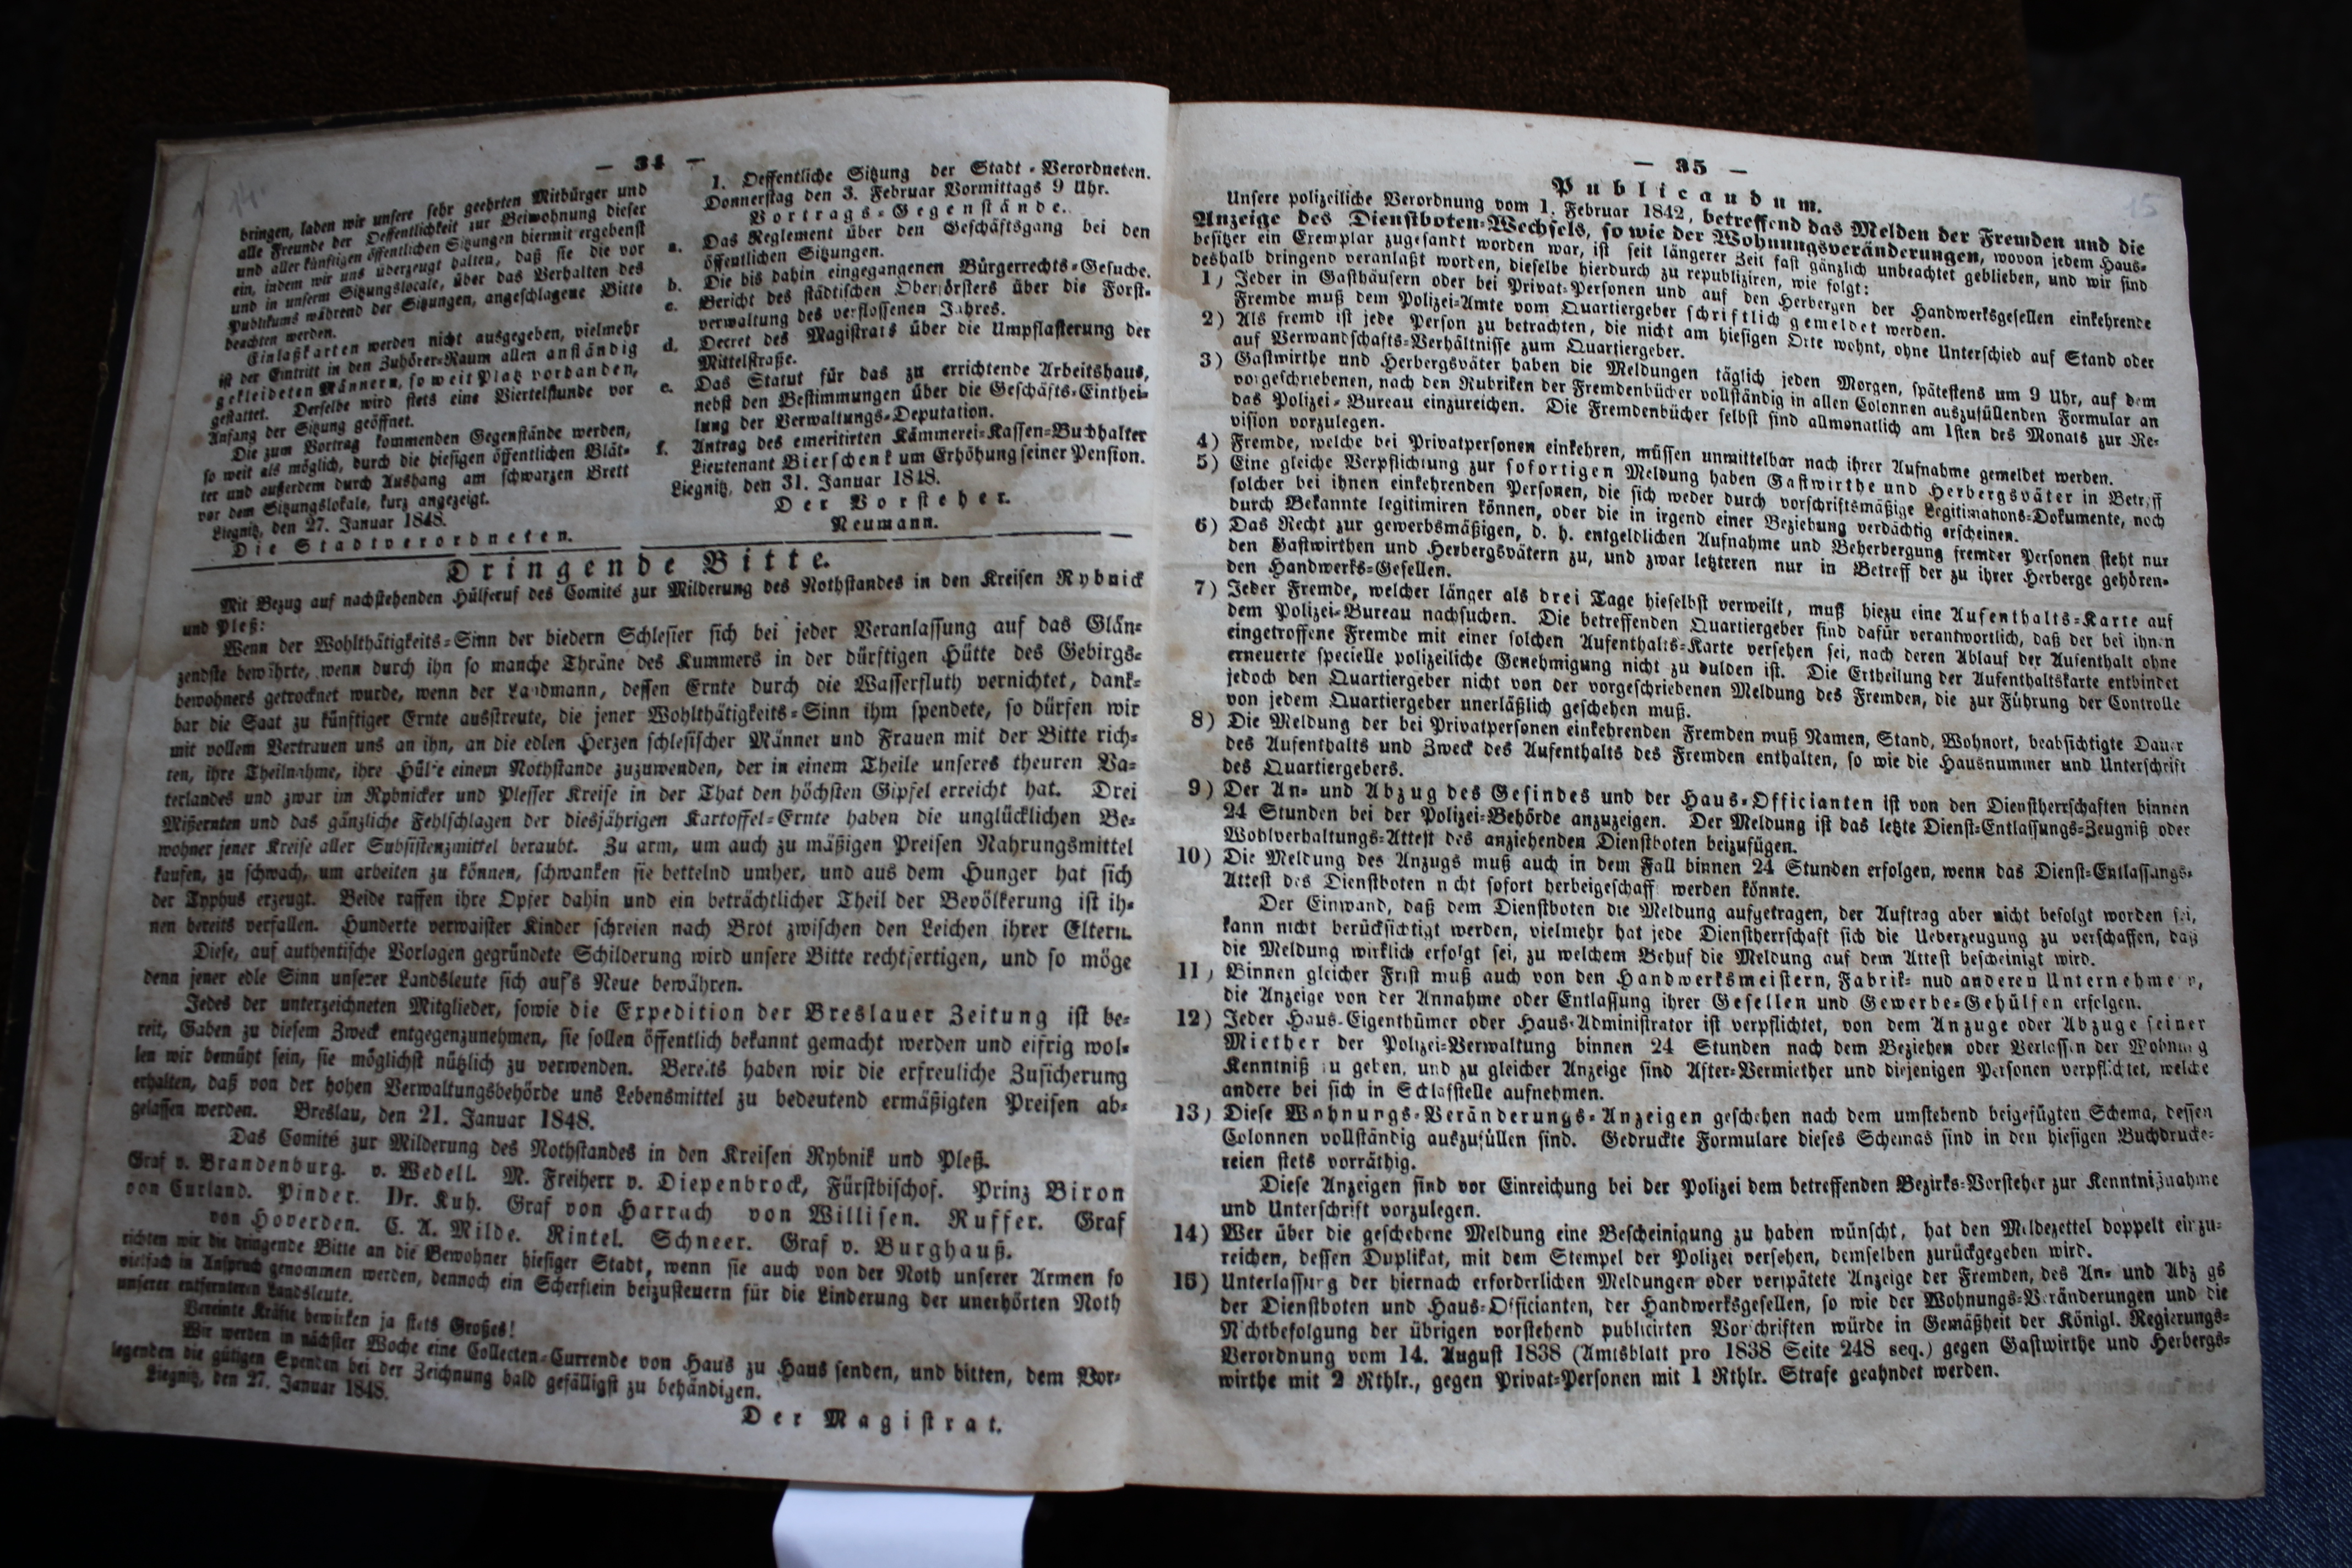 — 34 —
bringen, laden wir unsere sehr geehrten Mitbürger und
alle Freunde der Oeffentlichkeit zur Beiwohnung dieser
und aller künftigen öffentlichen Sitzungen hiermit ergebenst
ein, indem wir uns überzeugt halten, daß sie die vor
und in unserm Sitzungslocale, über das Verhalten des
Publikums während der Sitzungen, angeschlagene Bitte
beachten werden.
Einlaßkarten werden nicht ausgegeben, vielmehr
ist der Eintritt in den Zuhörer-Raum allen anständig
gekleideten Männern, so weit Platz vorhanden,
gestattet. Derselbe wird stets eine Viertelstunde vor
Anfang der Sitzung geöffnet.
Die zum Vortrag kommenden Gegenstände werden,
so weit als möglich, durch die hiesigen öffentlichen Blät-
ter und außerdem durch Aushang am schwarzen Brett
vor dem Sitzungslokale, kurz angezeigt.
Liegnitz, den 27. Januar 1848.
Die Stadtverordneten.
1. Oeffentliche Sitzung der Stadt-Verordneten.
Donnerstag den 3. Februar Vormittags 9 Uhr.
Vortrags-Gegenstände.
a. Das Reglement über den Geschäftsgang bei den
öffentlichen Sitzungen.
b. Die bis dahin eingegangenen Bürgerrechts-Gesuche.
c. Bericht des städtischen Oberförsters über die Forst-
verwaltung des verflossenen Jahres.
d. Decret des Magistrats über die Umpflasterung der
Mittelstraße.
e. Das Statut für das zu errichtende Arbeitshaus,
nebst den Bestimmungen über die Geschäfts-Einthei-
lung der Verwaltungs-Deputation.
f. Antrag des emeritirten Kämmerei-Kassen-Buchhalter
Lieutenant Bierschenk um Erhöhung seiner Pension.
Liegnitz, den 31. Januar 1848.
Der Vorsteher.
Neumann.
Dringende Bitte.
Mit Bezug auf nachstehenden Hülferuf des Comité zur Milderung des Nothstandes in den Kreisen Rybnick
und Pleß:
Wenn der Wohlthätigkeits-Sinn der biedern Schlesier sich bei jeder Veranlassung auf das Glän-
zendste bewährte, wenn durch ihn so manche Thräne des Kummers in der dürftigen Hütte des Gebirgs-
bewohners getrocknet wurde, wenn der Landmann, dessen Ernte durch die Wasserfluth vernichtet, dank-
bar die Saat zu künftiger Ernte ausstreute, die jener Wohlthätigkeits-Sinn ihm spendete, so dürfen wir
mit vollem Vertrauen uns an ihn, an die edlen Herzen schlesischer Männer und Frauen mit der Bitte rich-
ten, ihre Theilnahme, ihre Hülfe einem Nothstande zuzuwenden, der in einem Theile unseres theuren Va-
terlandes und zwar im Rybnicker und Plesser Kreise in der That den höchsten Gipfel erreicht hat. Drei
Mißernten und das gänzliche Fehlschlagen der diesjährigen Kartoffel-Ernte haben die unglücklichen Be-
wohner jener Kreise aller Subsistenzmittel beraubt. Zu arm, um auch zu mäßigen Preisen Nahrungsmittel
kaufen, zu schwach, um arbeiten zu können, schwanken sie bettelnd umher, und aus dem Hunger hat sich
der Typhus erzeugt. Beide raffen ihre Opfer dahin und ein beträchtlicher Theil der Bevölkerung ist ih-
nen bereits verfallen. Hunderte verwaister Kinder schreien nach Brot zwischen den Leichen ihrer Eltern.
Diese, auf authentische Vorlagen gegründete Schilderung wird unsere Bitte rechtfertigen, und so möge
denn jener edle Sinn unserer Landsleute sich auf's Neue bewähren.
Jedes der unterzeichneten Mitglieder, sowie die Expedition der Breslauer Zeitung ist be-
reit, Gaben zu diesem Zweck entgegenzunehmen, sie sollen öffentlich bekannt gemacht werden und eifrig wol-
len wir bemüht sein, sie möglichst nützlich zu verwenden. Bereits haben wir die erfreuliche Zusicherung
erhalten, daß von der hohen Verwaltungsbehörde uns Lebensmittel zu bedeutend ermäßigten Preisen ab-
gelassen werden. Breslau, den 21. Januar 1848.
Das Comité zur Milderung des Nothstandes in den Kreisen Rybnik und Pleß.
Graf v. Brandenburg. v. Wedell. M. Freiherr v. Diepenbrock, Fürstbischof. Prinz Biron
von Curland. Pinder. Dr. Kuh. Graf von Harrach von Willisen. Ruffer. Graf
von Hoverden. C. A. Milde. Rintel. Schneer. Graf v. Burghauß.
richten wir die dringende Bitte an die Bewohner hiesiger Stadt, wenn sie auch von der Noth unserer Armen so
vielfach in Anspruch genommen werden, dennoch ein Scherflein beizusteuern für die Linderung der unerhörten Noth
unserer entfernteren Landsleute.
Vereinte Kräfte bewirken ja stets Großes!
Wir werden in nächster Woche eine Collecten-Currende von Haus zu Haus senden, und bitten, dem Vor-
legenden die gütigen Spenden bei der Zeichnung bald gefälligst zu behändigen.
Liegnitz, den 27. Januar 1848.
Der Magistrat.
— 35 —
15
Publicandum.
Unsere polizeiliche Verordnung vom 1. Februar 1842, betreffend das Melden der Fremden und die
Anzeige des Dienstboten-Wechsels, so wie der Wohnungsveränderungen, wovon jedem Haus-
besitzer ein Exemplar zugesandt worden war, ist seit längerer Zeit fast gänzlich unbeachtet geblieben, und wir sind
deshalb dringend veranlaßt worden, dieselbe hierdurch zu republiziren, wie folgt:
1) Jeder in Gasthäusern oder bei Privat-Personen und auf den Herbergen der Handwerksgesellen einkehrende
Fremde muß dem Polizei-Amte vom Quartiergeber schriftlich gemeldet werden.
2) Als fremd ist jede Person zu betrachten, die nicht am hiesigen Orte wohnt, ohne Unterschied auf Stand oder
auf Verwandschafts-Verhältnisse zum Quartiergeber.
3) Gastwirthe und Herbergsväter haben die Meldungen täglich jeden Morgen, spätestens um 9 Uhr, auf dem
vorgeschriebenen, nach den Rubriken der Fremdenbücher vollständig in allen Colonnen auszufüllenden Formular an
das Polizei-Bureau einzureichen. Die Fremdenbücher selbst sind allmonatlich am 1sten des Monats zur Re-
vision vorzulegen.
4) Fremde, welche bei Privatpersonen einkehren, müssen unmittelbar nach ihrer Aufnahme gemeldet werden.
5) Eine gleiche Verpflichtung zur sofortigen Meldung haben Gastwirthe und Herbergsväter in Betreff
solcher bei ihnen einkehrenden Personen, die sich weder durch vorschriftsmäßige Legitimations-Dokumente, noch
durch Bekannte legitimiren können, oder die in irgend einer Beziehung verdächtig erscheinen.
6) Das Recht zur gewerbsmäßigen, d. h. entgeldlichen Aufnahme und Beherbergung fremder Personen steht nur
den Gastwirthen und Herbergsvätern zu, und zwar letzteren nur in Betreff der zu ihrer Herberge gehören-
den Handwerks-Gesellen.
7) Jeder Fremde, welcher länger als drei Tage hieselbst verweilt, muß hiezu eine Aufenthalts-Karte auf
dem Polizei-Bureau nachsuchen. Die betreffenden Quartiergeber sind dafür verantwortlich, daß der bei ihnen
eingetroffene Fremde mit einer solchen Aufenthalts-Karte versehen sei, nach deren Ablauf der Aufenthalt ohne
erneuerte specielle polizeiliche Genehmigung nicht zu dulden ist. Die Ertheilung der Aufenthaltskarte entbindet
jedoch den Quartiergeber nicht von der vorgeschriebenen Meldung des Fremden, die zur Führung der Controlle
von jedem Quartiergeber unerläßlich geschehen muß.
8) Die Meldung der bei Privatpersonen einkehrenden Fremden muß Namen, Stand, Wohnort, beabsichtigte Dauer
des Aufenthalts und Zweck des Aufenthalts des Fremden enthalten, so wie die Hausnummer und Unterschrift
des Quartiergebers.
9) Der An- und Abzug des Gesindes und der Haus-Officianten ist von den Dienstherrschaften binnen
24 Stunden bei der Polizei-Behörde anzuzeigen. Der Meldung ist das letzte Dienst-Entlassungs-Zeugniß oder
Wohlverhaltungs-Attest des anziehenden Dienstboten beizufügen.
10) Die Meldung des Anzugs muß auch in dem Fall binnen 24 Stunden erfolgen, wenn das Dienst-Entlassungs-
Attest des Dienstboten nicht sofort herbeigeschafft werden könnte.
Der Einwand, daß dem Dienstboten die Meldung aufgetragen, der Auftrag aber nicht befolgt worden sei,
kann nicht berücksichtigt werden, vielmehr hat jede Dienstherrschaft sich die Ueberzeugung zu verschaffen, daß
die Meldung wirklich erfolgt sei, zu welchem Behuf die Meldung auf dem Attest bescheinigt wird.
11) Binnen gleicher Frist muß auch von den Handwerksmeistern, Fabrik- nud anderen Unternehmern,
die Anzeige von der Annahme oder Entlassung ihrer Gesellen und Gewerbe-Gehülfen erfolgen.
12) Jeder Haus-Eigenthümer oder Haus-Administrator ist verpflichtet, von dem Anzuge oder Abzuge seiner
Miether der Polizei-Verwaltung binnen 24 Stunden nach dem Beziehen oder Verlassen der Wohnung
Kenntniß zu geben, und zu gleicher Anzeige sind After-Vermiether und diejenigen Personen verpflichtet, welche
andere bei sich in Schlafstelle aufnehmen.
13) Diese Wohnungs-Veränderungs-Anzeigen geschehen nach dem umstehend beigefügten Schema, dessen
Colonnen vollständig auszufüllen sind. Gedruckte Formulare dieses Schemas sind in den hiesigen Buchdrucke-
reien stets vorräthig.
Diese Anzeigen sind vor Einreichung bei der Polizei dem betreffenden Bezirks-Vorsteher zur Kenntnißnahme
und Unterschrift vorzulegen.
14) Wer über die geschehene Meldung eine Bescheinigung zu haben wünscht, hat den Meldezettel doppelt einzu-
reichen, dessen Duplikat, mit dem Stempel der Polizei versehen, demselben zurückgegeben wird.
15) Unterlassung der hiernach erforderlichen Meldungen oder verspätete Anzeige der Fremden, des An- und Abzugs
der Dienstboten und Haus-Officianten, der Handwerksgesellen, so wie der Wohnungs-Veränderungen und die
Nichtbefolgung der übrigen vorstehend publicirten Vorschriften würde in Gemäßheit der Königl. Regierungs-
Verordnung vom 14. August 1838 (Amtsblatt pro 1838 Seite 248 seq.) gegen Gastwirthe und Herbergs-
wirthe mit 2 Rthlr., gegen Privat-Personen mit 1 Rthlr. Strafe geahndet werden.